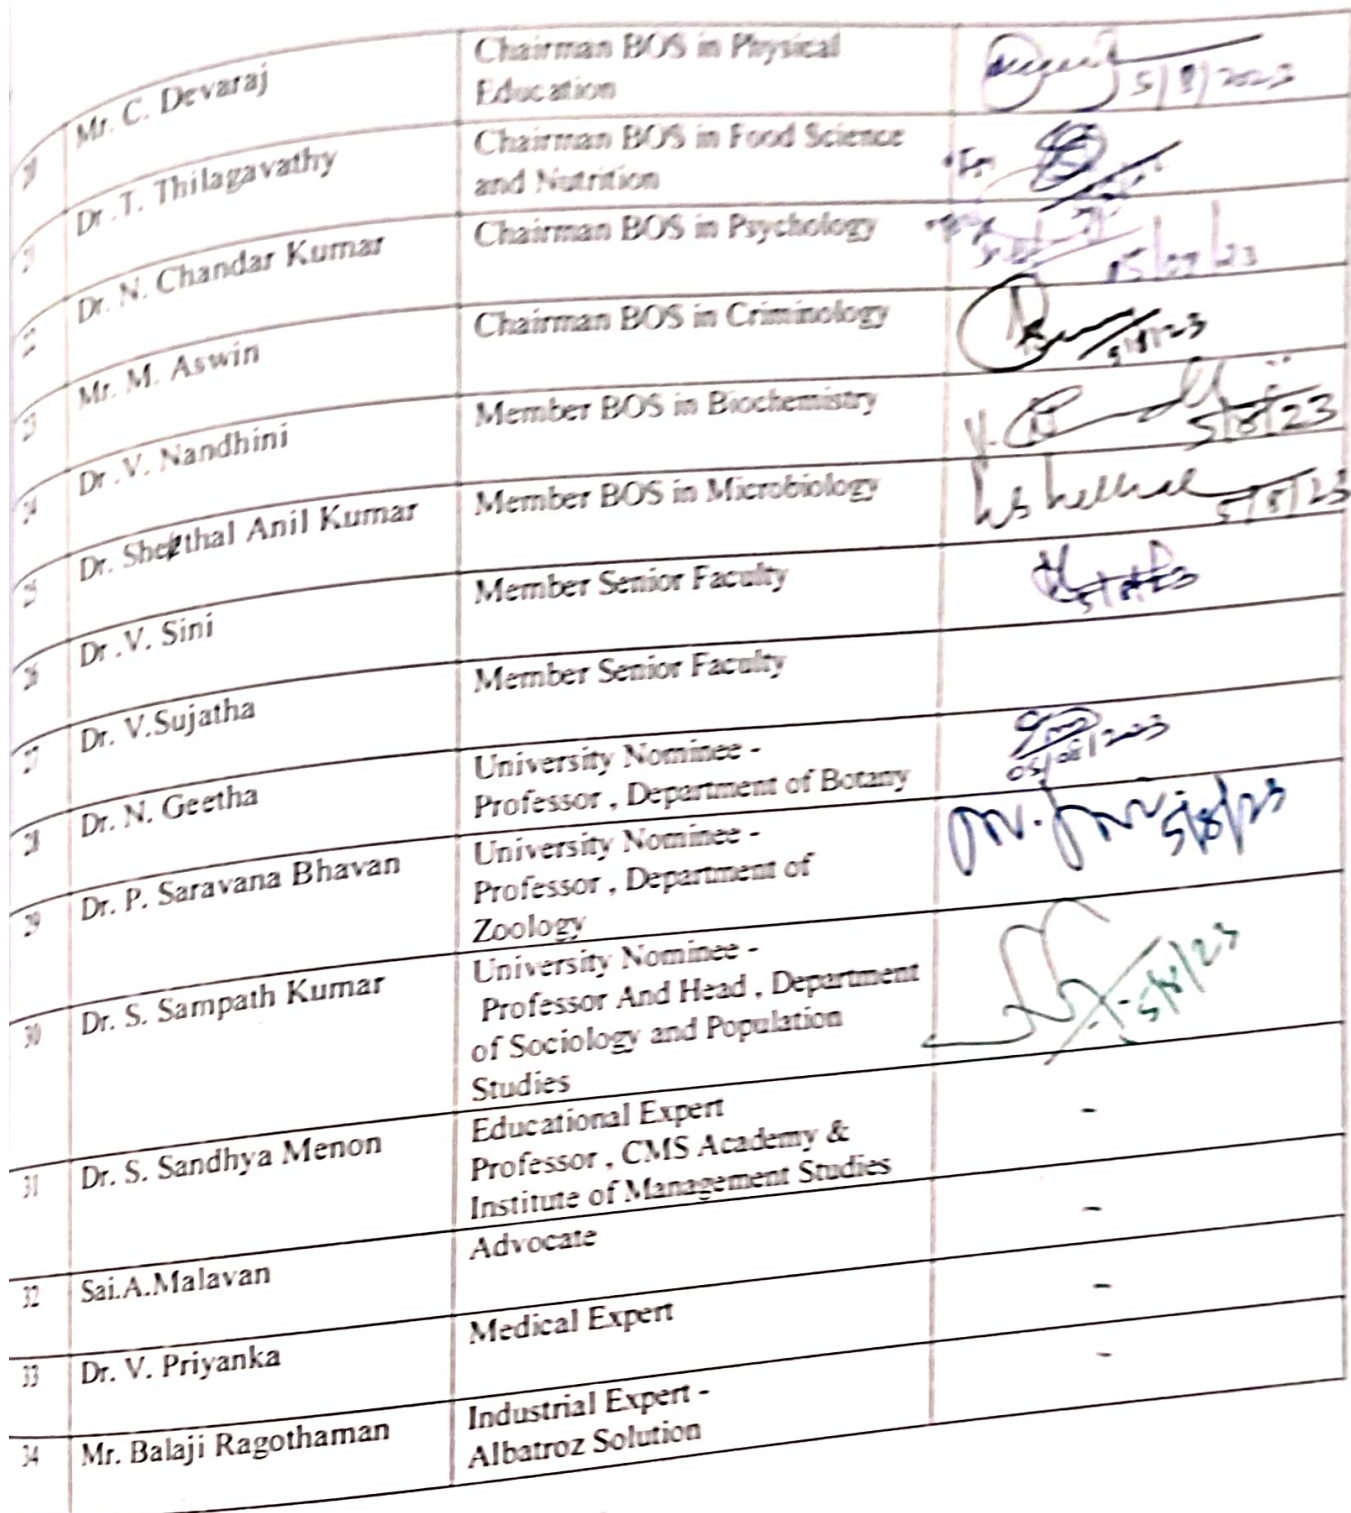 20 Mr. C. Devaraj Chairman BOS in Physical
Education 5/8/2023
21 Dr .T. Thilagavathy Chairman BOS in Food Science
and Nutrition
22 Dr. N. Chandar Kumar Chairman BOS in Psychology
23 Mr. M. Aswin Chairman BOS in Criminology 5/8/23
24 Dr .V. Nandhini Member BOS in Biochemistry 5/8/23
25 Dr. Sheethal Anil Kumar Member BOS in Microbiology 5/8/23
26 Dr .V. Sini Member Senior Faculty 5/8/23
27 Dr. V.Sujatha Member Senior Faculty
28 Dr. N. Geetha University Nominee -
Professor , Department of Botany 05/08/2023
29 Dr. P. Saravana Bhavan University Nominee -
Professor , Department of
Zoology 5/8/23
30 Dr. S. Sampath Kumar University Nominee -
Professor And Head , Department
of Sociology and Population
Studies 5/8/23
31 Dr. S. Sandhya Menon Educational Expert -
Professor , CMS Academy &
Institute of Management Studies
32 Sai.A.Malavan Advocate -
33 Dr. V. Priyanka Medical Expert -
34 Mr. Balaji Ragothaman Industrial Expert - -
Albatroz Solution